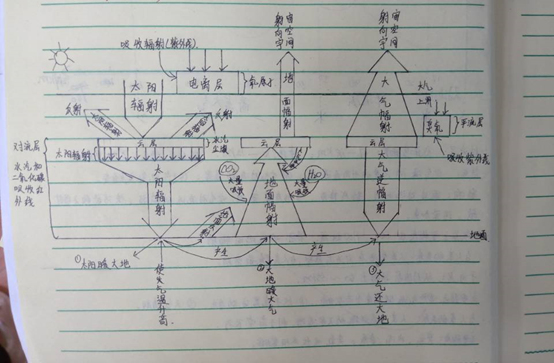 射向宇宙空间
射向宇宙空间
吸收辐射(紫外线)
太阳辐射
电离层
地面辐射
大气辐射
大气上界
反射
反射
臭氧
平流层
对流层
云层
水汽
尘埃
云层
云层
吸收紫外线
太阳辐射
水汽和
二氧化碳
吸收红
外线
太阳辐射
CO₂
大量吸收
H₂O
地面辐射
大气逆辐射
地面
产生
产生
①太阳暖大地
②大地暖大气
③大气还大地